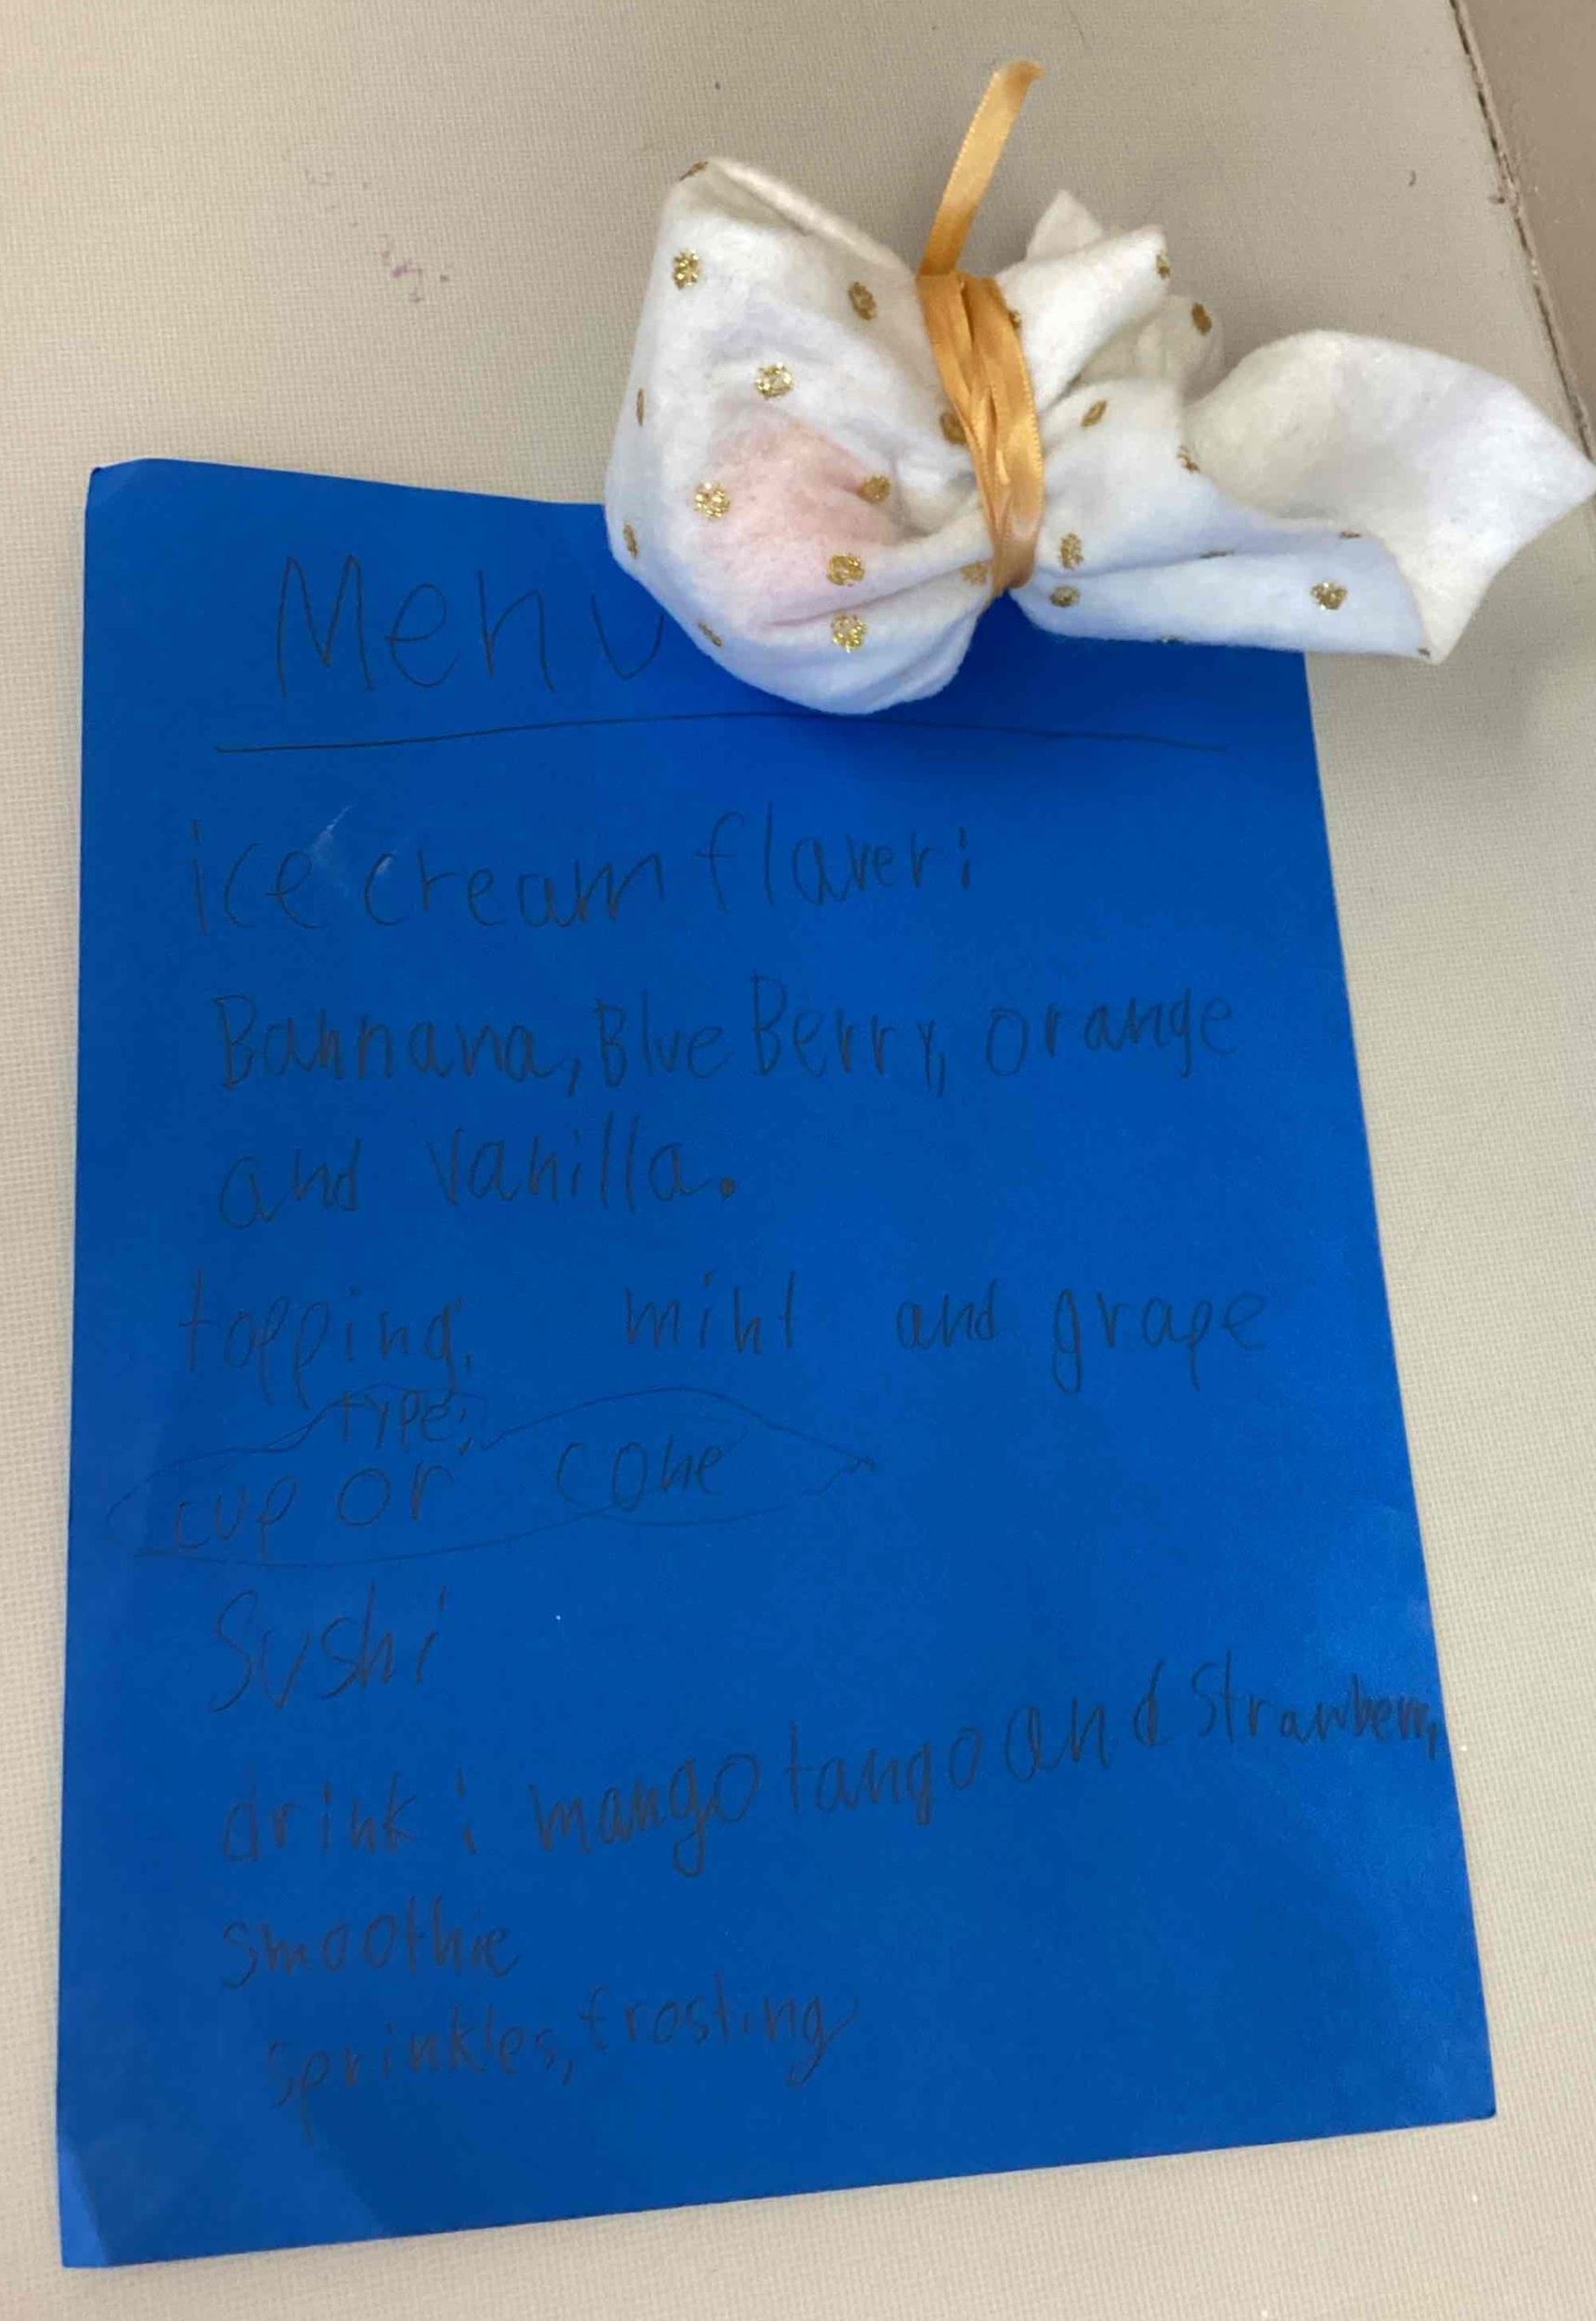 Menu
ice cream flaver:
Bannana, Blue Berry, orange
and vanilla.
topping. mint and grape
TYPE:
cup or cone
Sushi
drink: mango tango and strawberry
smoothie
sprinkles, frosting